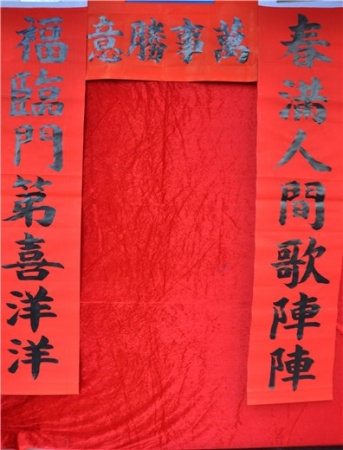 萬事勝意
春滿人間歌陣陣
福臨門苐喜洋洋